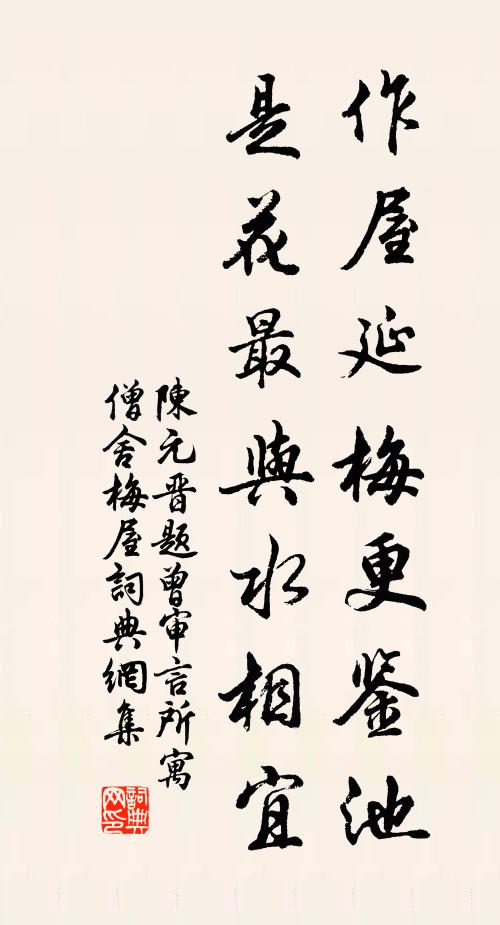 作屋延梅更鉴池
是花最與水相宜
陳元晋題曾审言所寓
僧舍梅屋詞典網集
詞典网印